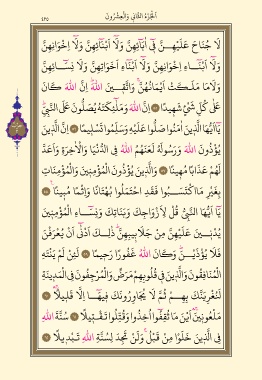 الجزء الثاني والعشرون
٤٢٥
لَا جُنَاحَ عَلَيْهِنَّ فِي آبَائِهِنَّ وَلَا أَبْنَائِهِنَّ وَلَا إِخْوَانِهِنَّ
وَلَا أَبْنَاءِ إِخْوَانِهِنَّ وَلَا أَبْنَاءِ أَخَوَاتِهِنَّ وَلَا نِسَائِهِنَّ
وَلَا مَا مَلَكَتْ أَيْمَانُهُنَّ وَاتَّقِينَ اللهَ إِنَّ اللهَ كَانَ
عَلَى كُلِّ شَيْءٍ شَهِيدًا إِنَّ اللهَ وَمَلَئِكَتَهُ يُصَلُّونَ عَلَى النَّبِيِّ
يَا أَيُّهَا الَّذِينَ آمَنُوا صَلُّوا عَلَيْهِ وَسَلِّمُوا تَسْلِيمًا إِنَّ الَّذِينَ
يُؤْذُونَ اللهَ وَرَسُولَهُ لَعَنَهُمُ اللهُ فِي الدُّنْيَا وَالْآخِرَةِ وَأَعَدَّ
لَهُمْ عَذَابًا مُهِينًا وَالَّذِينَ يُؤْذُونَ الْمُؤْمِنِينَ وَالْمُؤْمِنَاتِ
بِغَيْرِ مَا اكْتَسَبُوا فَقَدِ احْتَمَلُوا بُهْتَانًا وَإِثْمًا مُبِينًا
يَا أَيُّهَا النَّبِيُّ قُلْ لِأَزْوَاجِكَ وَبَنَاتِكَ وَنِسَاءِ الْمُؤْمِنِينَ
يُدْنِينَ عَلَيْهِنَّ مِنْ جَلَابِيبِهِنَّ ذَلِكَ أَدْنَى أَنْ يُعْرَفْنَ
فَلَا يُؤْذَيْنَ وَكَانَ اللهُ غَفُورًا رَحِيمًا لَئِنْ لَمْ يَنْتَهِ
الْمُنَافِقُونَ وَالَّذِينَ فِي قُلُوبِهِمْ مَرَضٌ وَالْمُرْجِفُونَ فِي الْمَدِينَةِ
لَنُغْرِيَنَّكَ بِهِمْ ثُمَّ لَا يُجَاوِرُونَكَ فِيهَا إِلَّا قَلِيلًا
مَلْعُونِينَ أَيْنَ مَا ثُقِفُوا أُخِذُوا وَقُتِّلُوا تَقْتِيلًا سُنَّةَ اللهِ
فِي الَّذِينَ خَلَوْا مِنْ قَبْلُ وَلَنْ تَجِدَ لِسُنَّةِ اللهِ تَبْدِيلًا